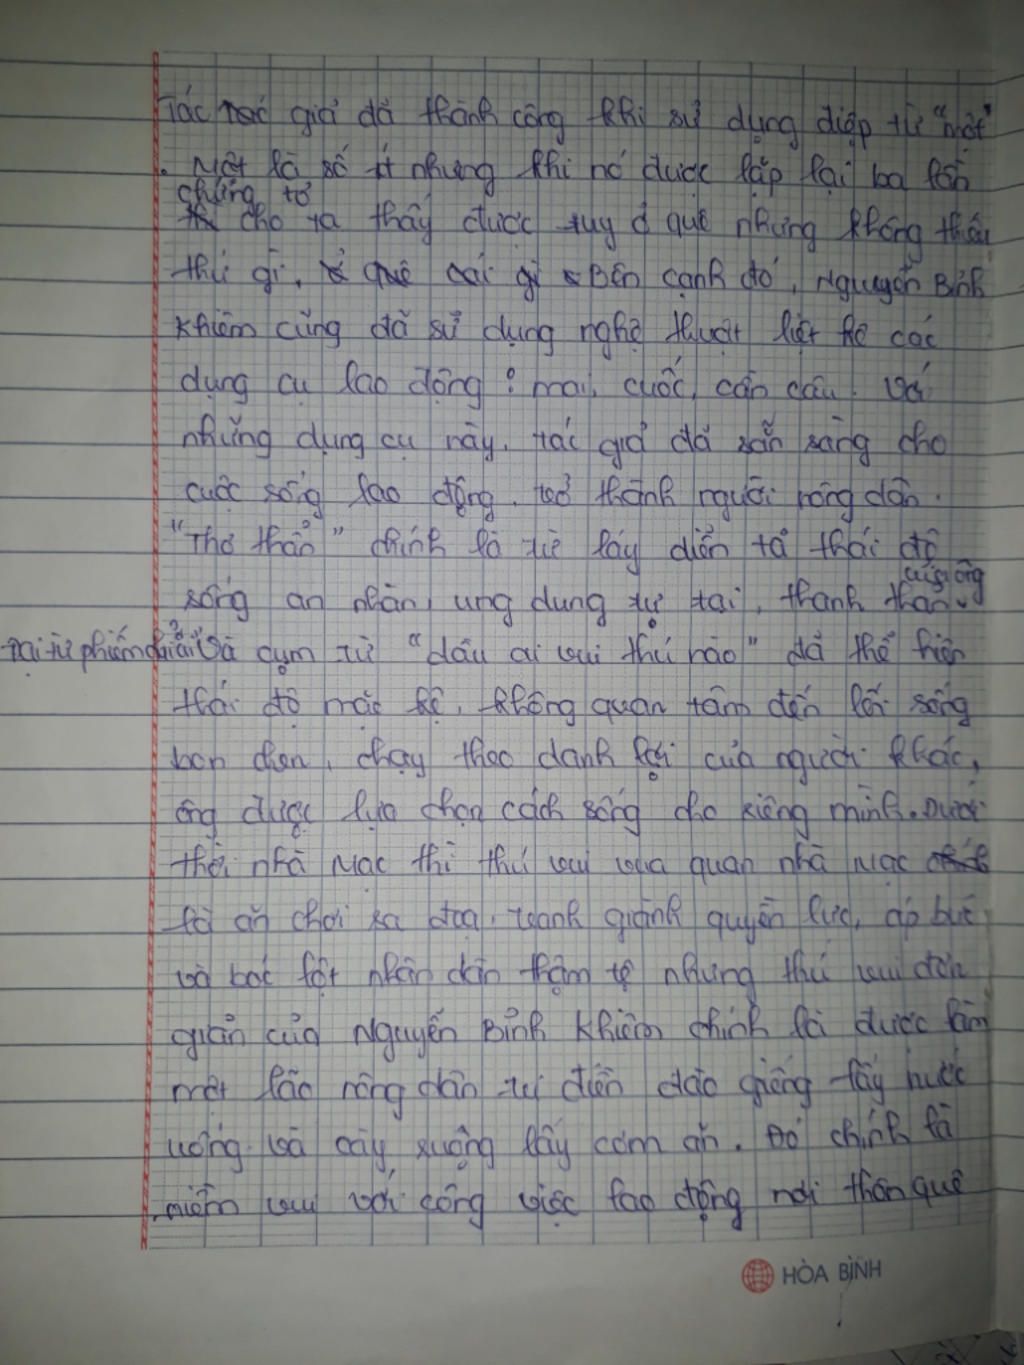 Tác giả đã thành công khi sử dụng điệp từ "một"
. Một là số ít nhưng khi nó được lặp lại ba lần
chứng tỏ
cho ta thấy được tuy ở quê nhưng không thiếu
thứ gì, ở quê cái gì Bên cạnh đó, Nguyễn Bỉnh
Khiêm cũng đã sử dụng nghệ thuật liệt kê các
dụng cụ lao động : mai, cuốc, cần câu. Với
những dụng cụ này, tác giả đã sẵn sàng cho
cuộc sống lao động, trở thành người nông dân.
"Thơ thẩn" chính là từ láy diễn tả thái độ
của ông
sống an nhàn, ung dung tự tại, thanh thản.
Đại từ phiếm chỉ "ai" Và cụm từ "dầu ai vui thú nào" đã thể hiện
thái độ mặc kệ, không quan tâm đến lối sống
bon chen, chạy theo danh lợi của người khác,
ông được lựa chọn cách sống cho riêng mình. Dưới
thời nhà Mạc thì thú vui vua quan nhà Mạc
là ăn chơi sa đọa, tranh giành quyền lực, áp bức
và bóc lột nhân dân thậm tệ nhưng thú vui đơn
giản của Nguyễn Bỉnh Khiêm chính là được làm
một lão nông dân tri điền đào giếng lấy nước
uống và cày ruộng lấy cơm ăn. Đó chính là
niềm vui với công việc lao động nơi thôn quê
HÒA BÌNH